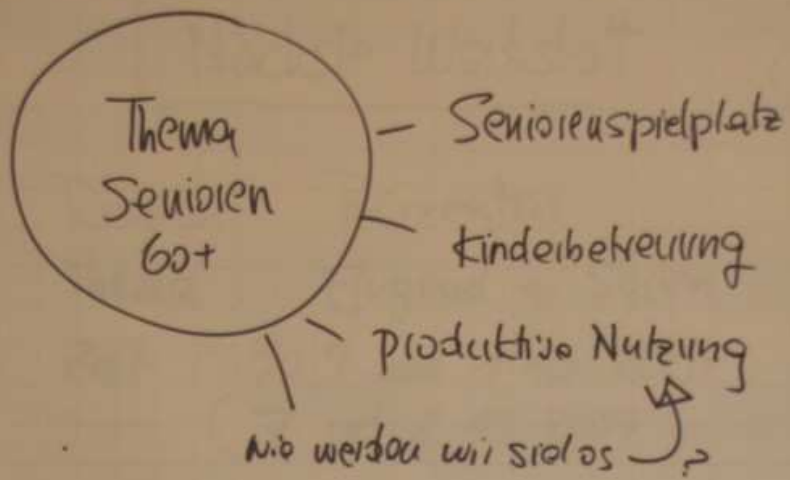 Thema
Senioren
60+
Seniorenspielplatz
Kinderbetreuung
produktive Nutzung
Wie werden wir sie los ?